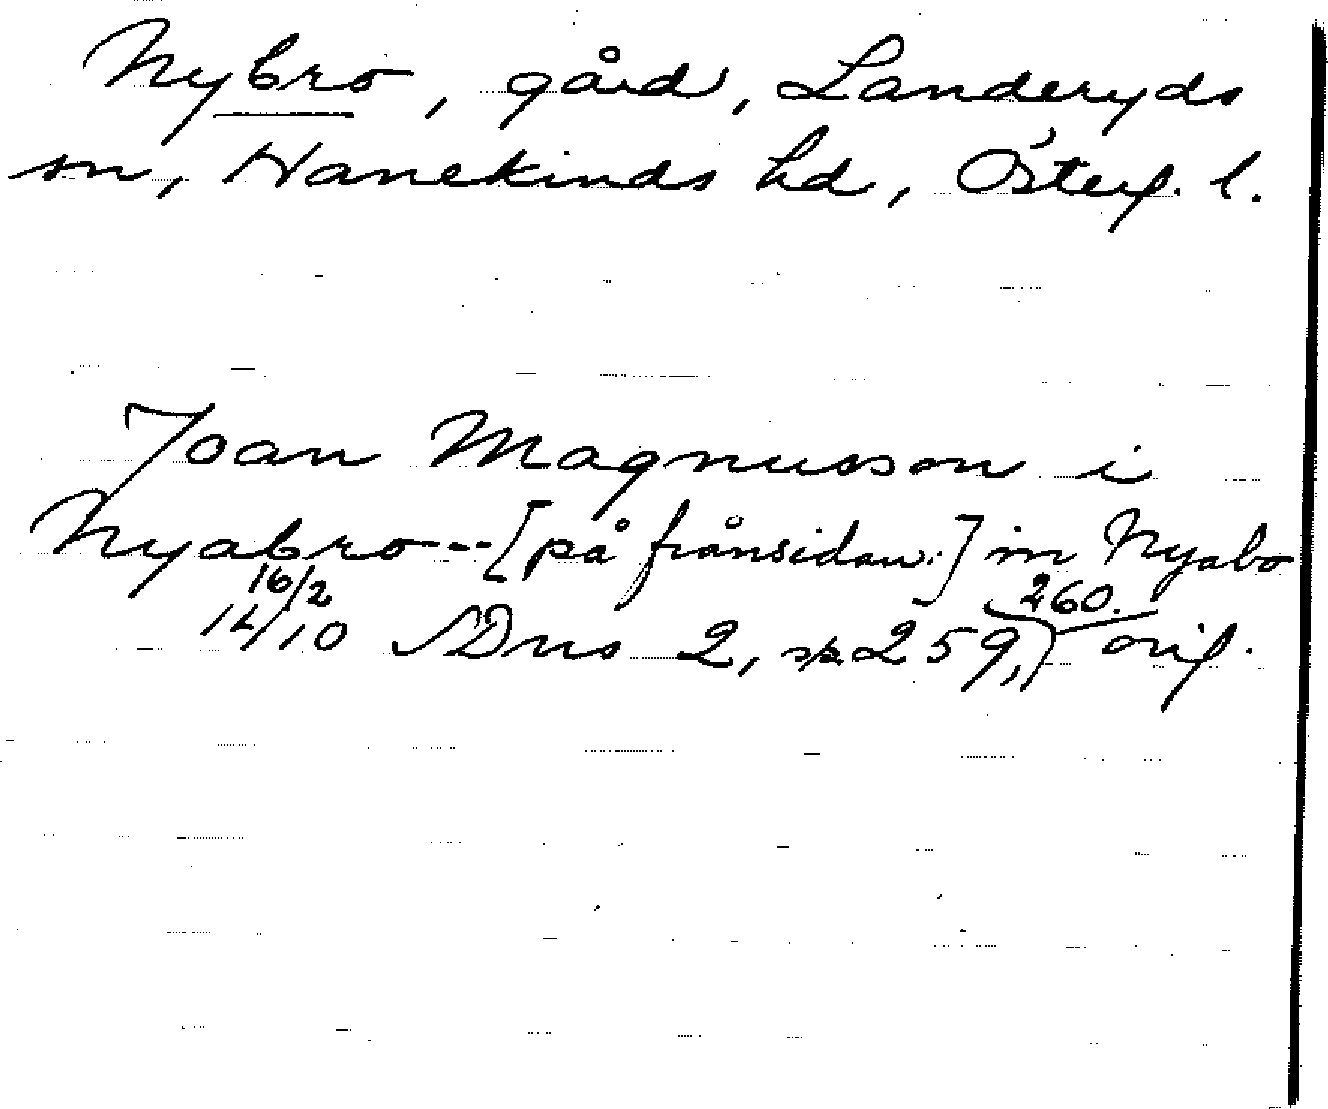 Nybro, gård, Landeryds
sn, Hanekinds hd, Österg. l.
Joan Magnusson i
Nyabro -- [på frånsidan:] in Nyabo
16/2
14/10 SDns 2, sp. 259, 260. orig.